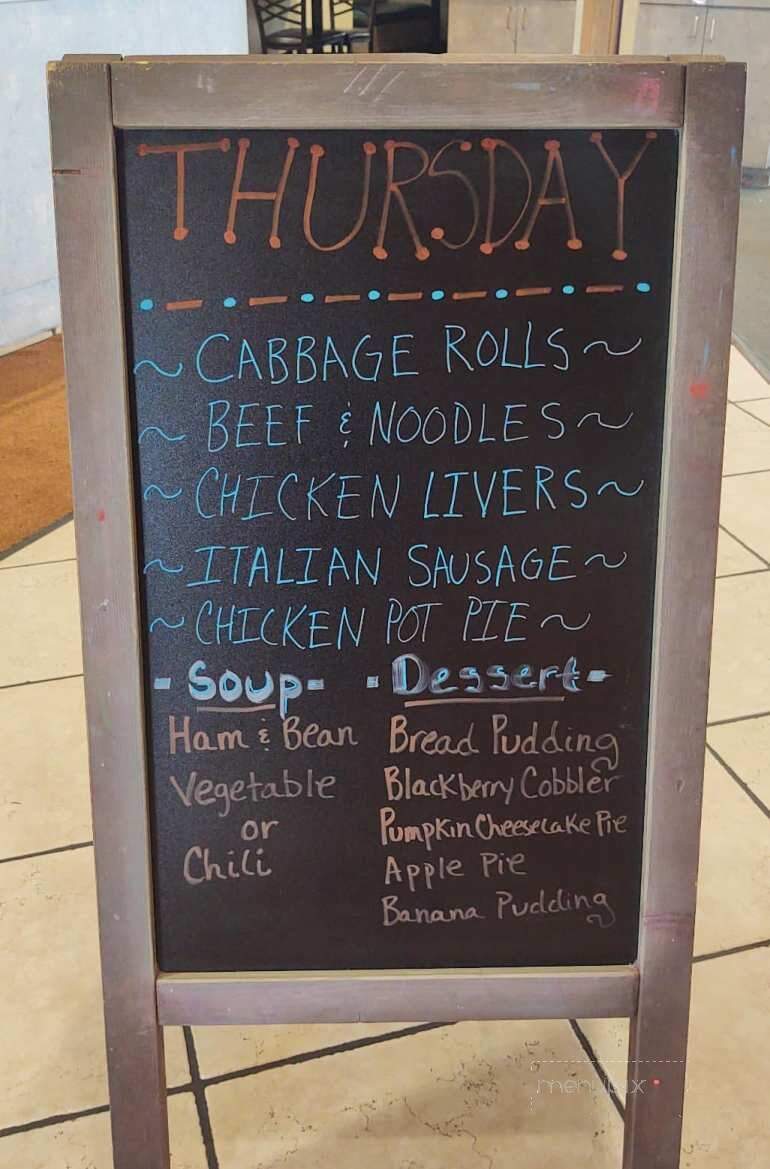 THURSDAY
~ CABBAGE ROLLS ~
~ BEEF & NOODLES ~
~ CHICKEN LIVERS ~
~ ITALIAN SAUSAGE ~
~ CHICKEN POT PIE ~
- Soup -
Ham & Bean
Vegetable
or
Chili
- Dessert -
Bread Pudding
Blackberry Cobbler
Pumpkin Cheesecake Pie
Apple Pie
Banana Pudding
menupix